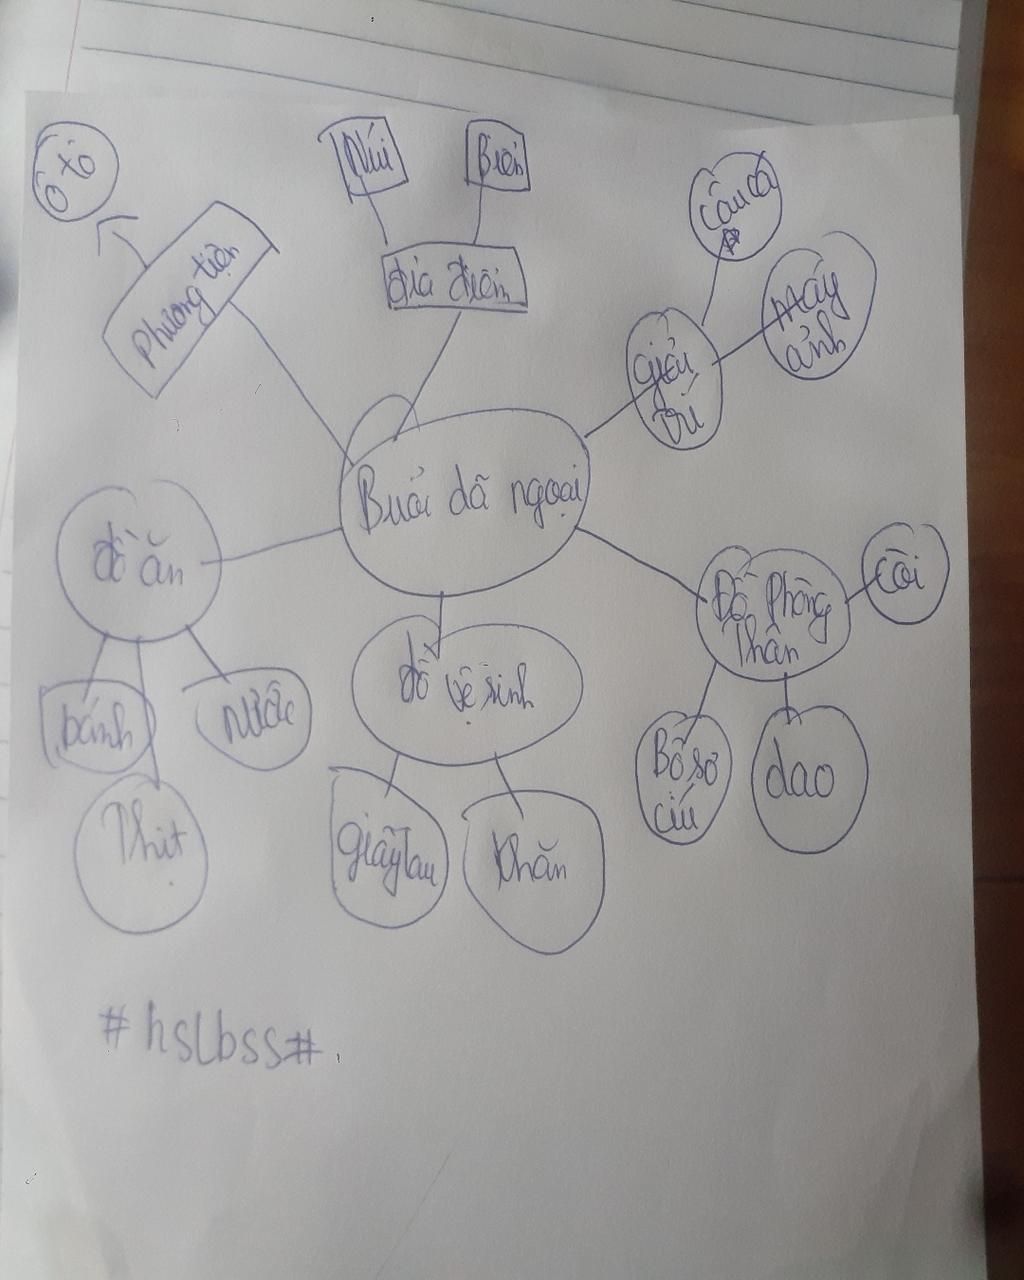 Ô tô
Núi
Biển
Câu cá
Phương tiện
địa điểm
máy
ảnh
giải
trí
Buổi dã ngoại
đồ ăn
Còi
Đồ phòng
thân
đồ vệ sinh
bánh
nước
Bộ sơ
cứu
dao
Thịt
giấy lau
khăn
#hslbss#